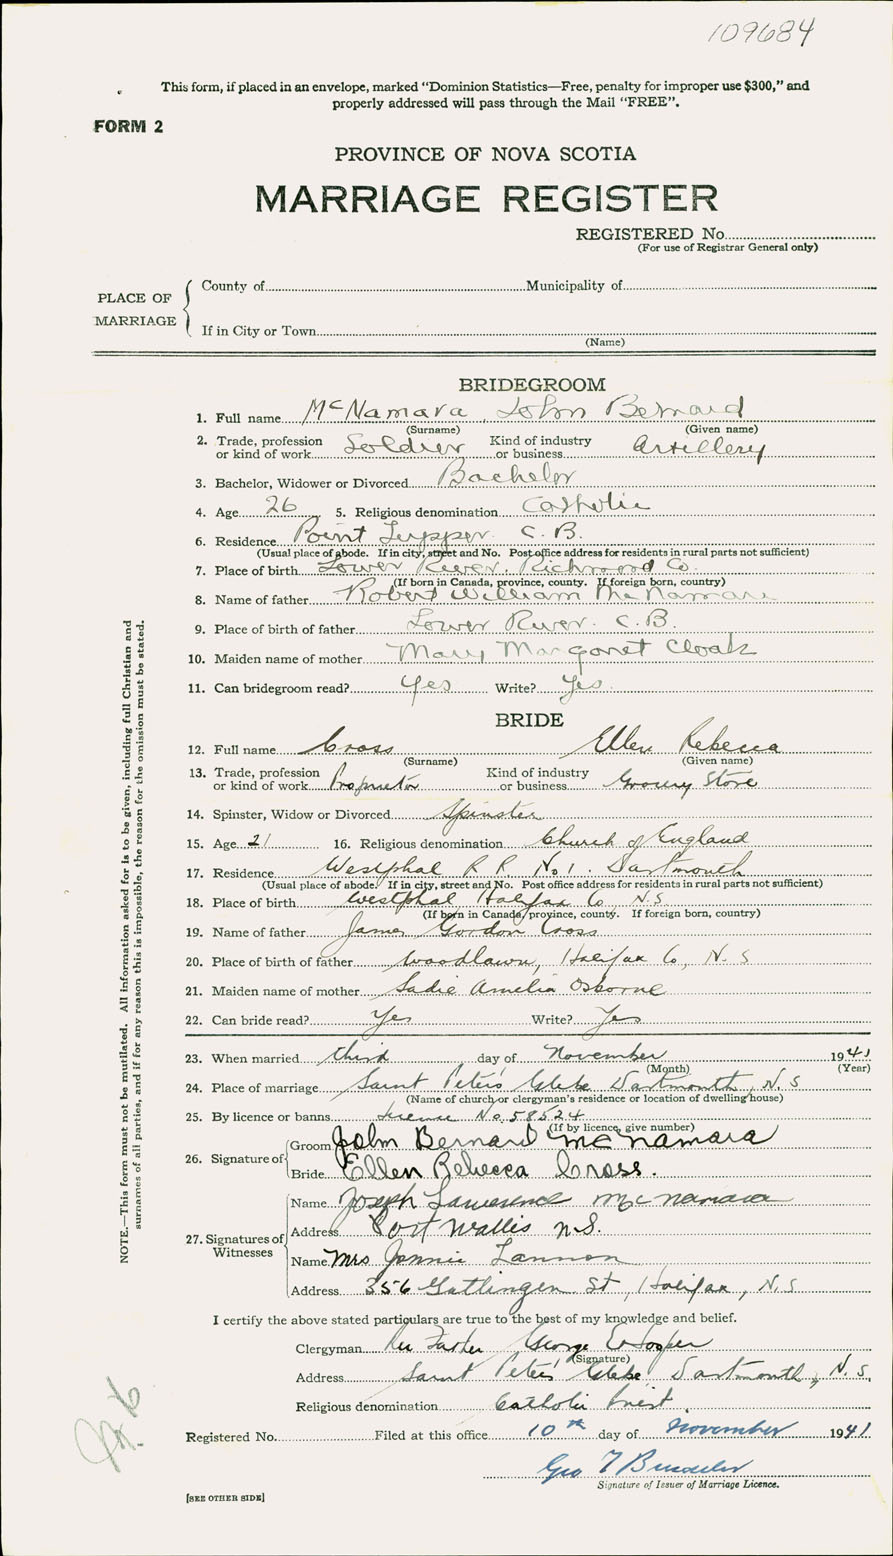 109684
This form, if placed in an envelope, marked “Dominion Statistics—Free, penalty for improper use $300,” and
properly addressed will pass through the Mail “FREE”.
FORM 2
PROVINCE OF NOVA SCOTIA
MARRIAGE REGISTER
REGISTERED No.
(For use of Registrar General only)
PLACE OF MARRIAGE
County of Municipality of
If in City or Town
(Name)
BRIDEGROOM
1. Full name McNamara John Bernard
(Surname) (Given name)
2. Trade, profession or kind of work Soldier Kind of industry or business Artillery
3. Bachelor, Widower or Divorced Bachelor
4. Age 26 5. Religious denomination Catholic
6. Residence Point Tupper C.B.
(Usual place of abode. If in city, street and No. Post office address for residents in rural parts not sufficient)
7. Place of birth Lower River, Richmond Co.
(If born in Canada, province, county. If foreign born, country)
8. Name of father Robert William McNamara
9. Place of birth of father Lower River. C.B.
10. Maiden name of mother Mary Margaret
11. Can bridegroom read? Yes Write? Yes.
BRIDE
12. Full name Cross Ellen Rebecca
(Surname) (Given name)
13. Trade, profession or kind of work Proprietor Kind of industry or business Grocery Store
14. Spinster, Widow or Divorced Spinster
15. Age 21 16. Religious denomination Church of England
17. Residence Westphal R R No 1. Dartmouth
(Usual place of abode. If in city, street and No. Post office address for residents in rural parts not sufficient)
18. Place of birth Westphal Halifax Co N.S
(If born in Canada, province, county. If foreign born, country)
19. Name of father James Gordon Cross
20. Place of birth of father Woodlawn, Halifax Co, N. S
21. Maiden name of mother Sadie Amelia Osborne
22. Can bride read? Yes Write? Yes
23. When married third day of November 1941
(Month) (Year)
24. Place of marriage Saint Peter's Glebe Dartmouth, N. S
(Name of church or clergyman's residence or location of dwelling house)
25. By licence or banns License No. 58524
(If by licence, give number)
26. Signature of
Groom John Bernard McNamara
Bride Ellen Rebecca Cross.
27. Signatures of Witnesses
Name Joseph Lawrence McNamara
Address Port Wallis N.S.
Name Mrs Lannon
Address 356 St, Halifax, N. S
I certify the above stated particulars are true to the best of my knowledge and belief.
Clergyman Rev Father George
(Signature)
Address Saint Peter's Glebe, Dartmouth, N. S.
Religious denomination Catholic Priest.
Registered No. Filed at this office 10th day of November 1941
Geo T
Signature of Issuer of Marriage Licence.
[SEE OTHER SIDE]
NOTE.—This form must not be mutilated. All information asked for is to be given, including full Christian and
surnames of all parties, and if for any reason this is impossible, the reason for the omission must be stated.